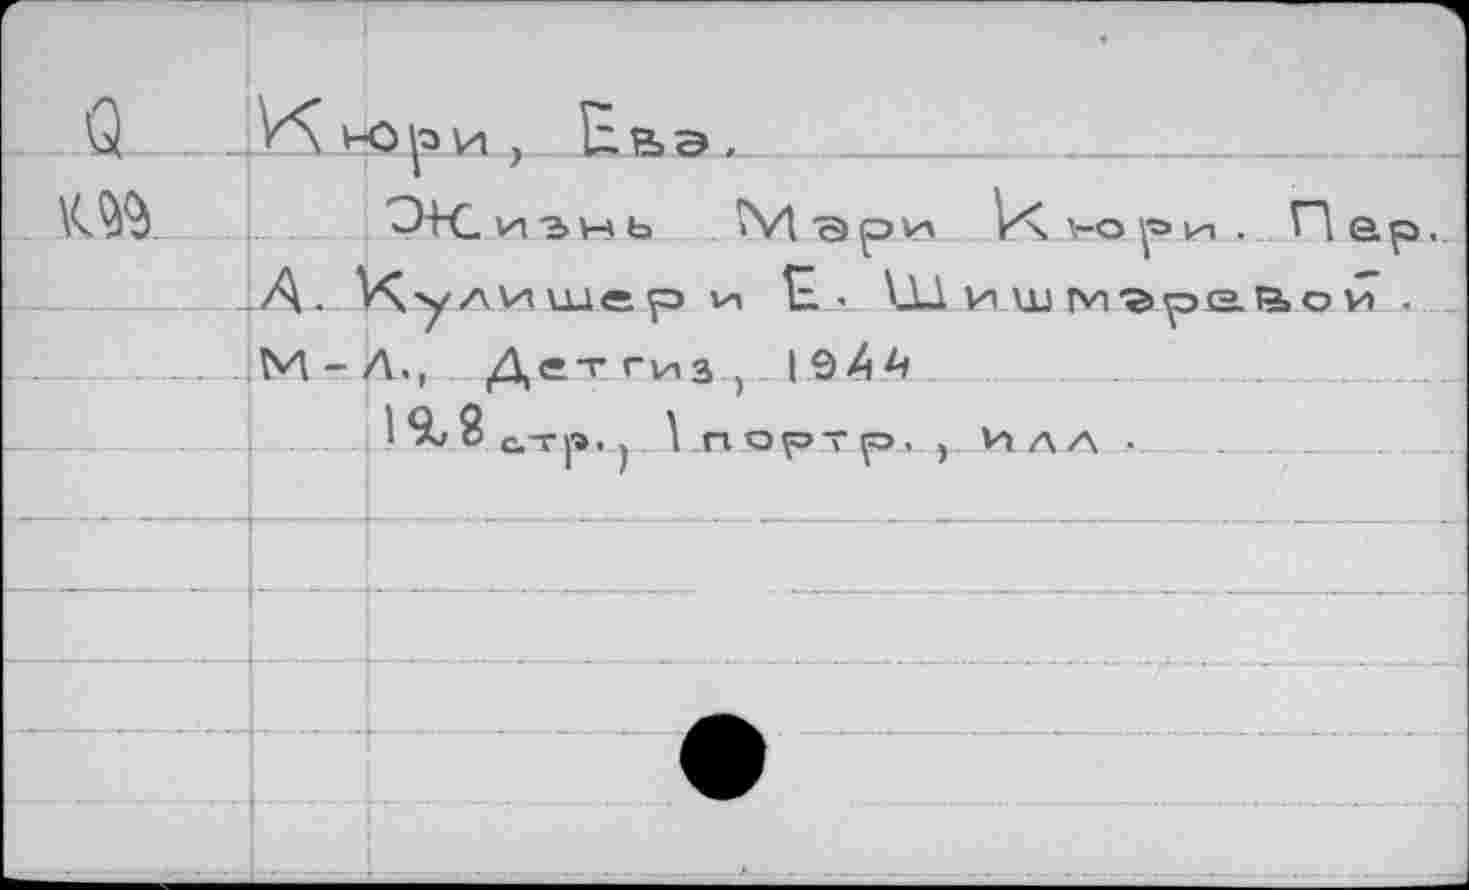 Q Кюри, Ева.
К99 Жизнь Мари Кюри. Пер.
А. Кулишер и Е. Шишмаревой.
М-Л., Детгиз, 1944
стр., 1 портр., илл.